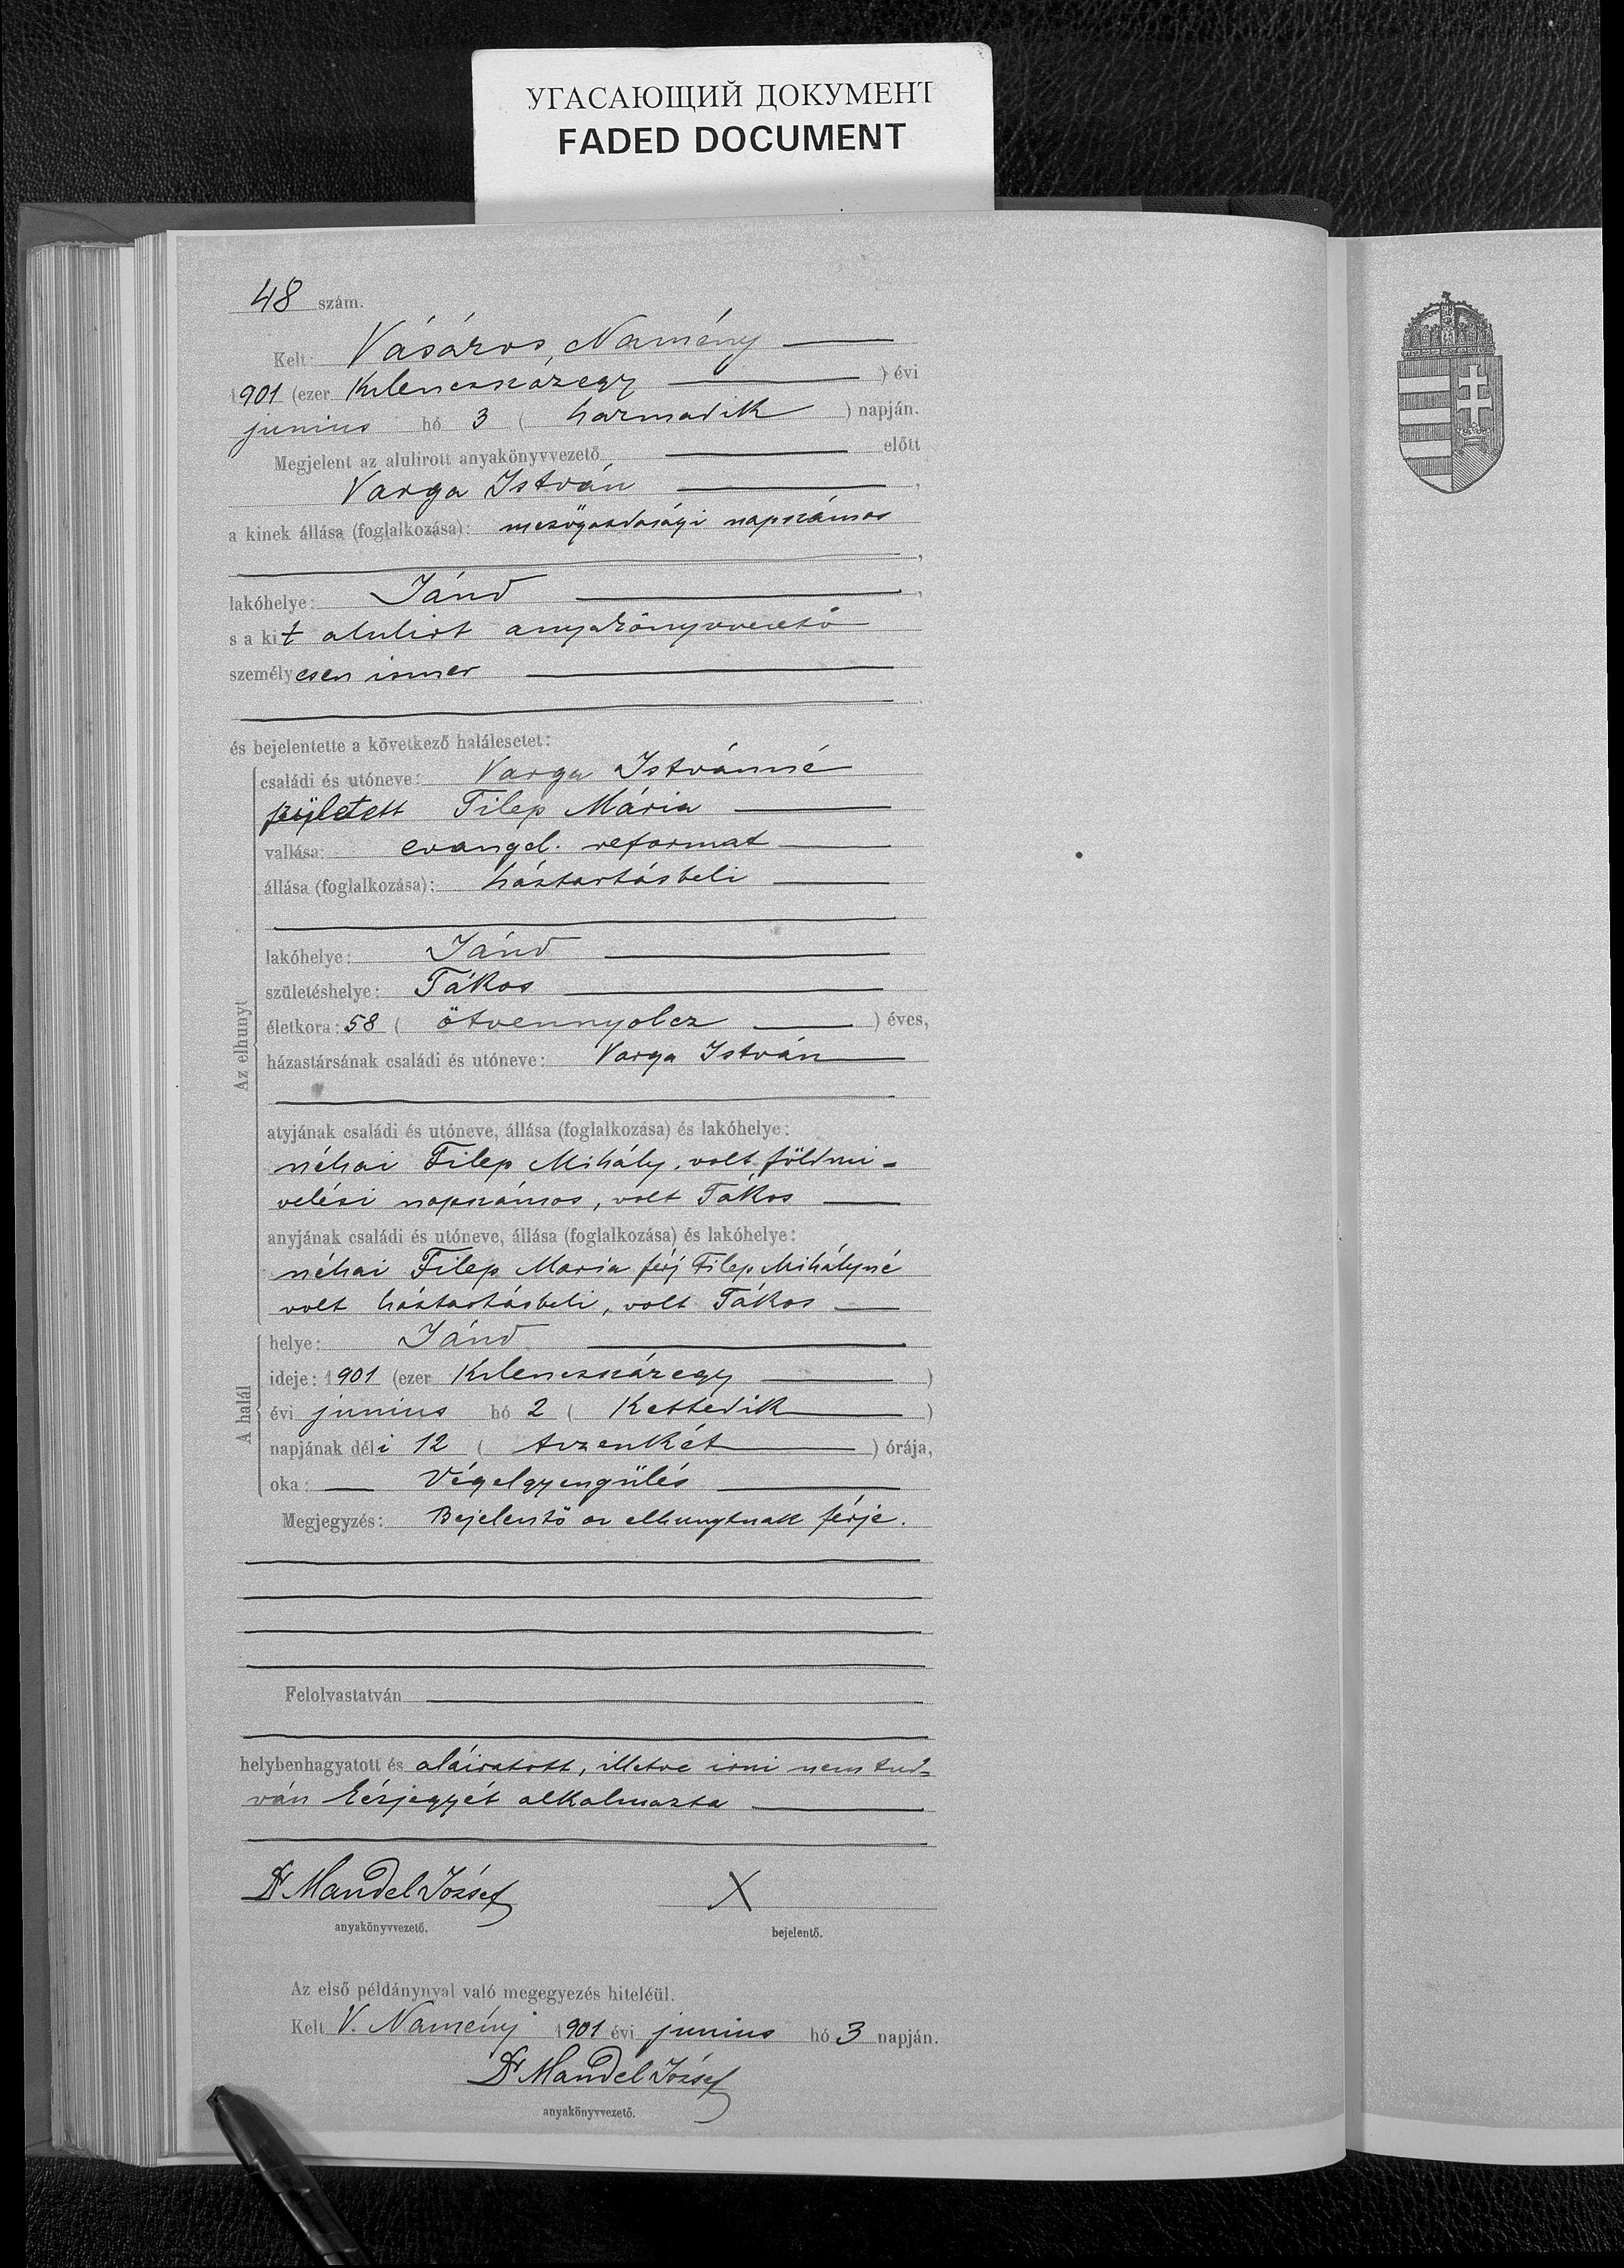 УГАСАЮЩИЙ ДОКУМЕНТ
FADED DOCUMENT
48 szám.
Kelt: Vásáros Namény
1901 (ezer kilenczszázegy ) évi
junius hó 3 ( harmadik ) napján.
Megjelent az alulirott anyakönyvvezető előtt
Varga István ,
a kinek állása (foglalkozása): mezőgazdasági napszámos
,
lakóhelye: Jánd ,
s a kit alulirt anyakönyvvezető
személyesen ismer
és bejelentette a következő halálesetet:
Az elhunyt
családi és utóneve: Varga Istvánné
született Filep Mária
vallása: evangel. reformat
állása (foglalkozása): háztartásbeli
lakóhelye: Jánd
születéshelye: Tákos
életkora: 58 ( ötvennyolcz ) éves,
házastársának családi és utóneve: Varga István
atyjának családi és utóneve, állása (foglalkozása) és lakóhelye:
néhai Filep Mihály, volt földmi-
velési napszámos, volt Tákos
anyjának családi és utóneve, állása (foglalkozása) és lakóhelye:
néhai Filep Maria férj Filep Mihályné
volt háztartásbeli, volt Tákos
A halál
helye: Jánd
ideje: 1901 (ezer kilenczszázegy )
évi junius hó 2 ( kettedik )
napjának déli 12 ( tizenkét ) órája,
oka: Végelgyengülés
Megjegyzés: Bejelentő az elhunytnak férje.
Felolvastatván
helybenhagyatott és aláiratott, illetve irni nem tud-
ván kézjegyét alkalmazta
Dr Mandel József X
anyakönyvvezető. bejelentő.
Az első példánynyal való megegyezés hiteléül.
Kelt V. Namény 1901 évi junius hó 3 napján.
Dr Mandel József
anyakönyvvezető.